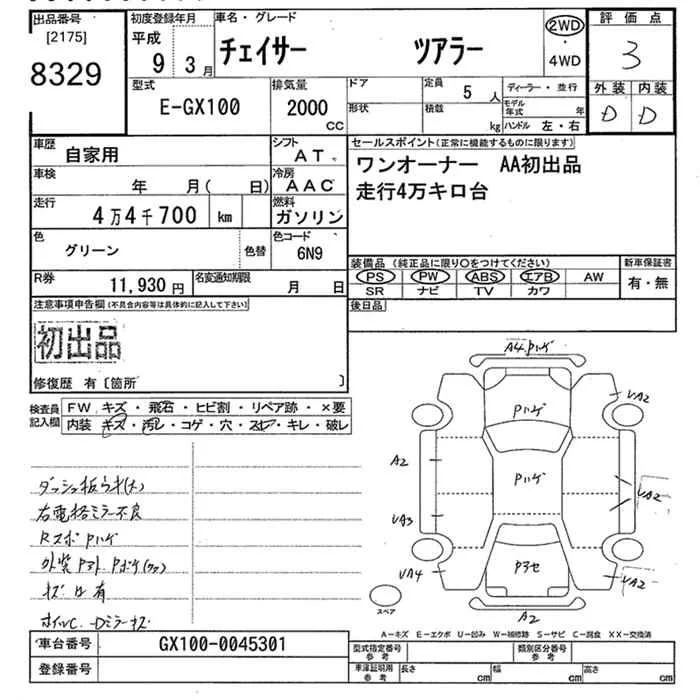 出品番号
[2175]
8329
初度登録年月
平成
9 3月
車名・グレード
チェイサー ツアラー
2WD
・
4WD
評価点
3
外装 内装
D D
型式
E-GX100
排気量
2000
CC
ドア
形状
定員
5 人
積載
kg
ディーラー・並行
モデル年式 年
ハンドル 左・右
車歴
自家用
シフト
AT
車検
年 月( 日)
冷房
AAC
走行
4万4千700 km
燃料
ガソリン
色
グリーン
色替
色コード
6N9
R券
11,930円
名変通知期限
月 日
セールスポイント(正常に機能するものに限ります)
ワンオーナー AA初出品
走行4万キロ台
装備品 (純正品に限り○をつけてください)
PS PW ABS エアB AW
SR ナビ TV カワ
新車保証書
有・無
後日品
注意事項申告欄(不具合内容等は具体的に記入して下さい)
初出品
修復歴 有〔箇所 〕
検査員
記入欄
FW キズ・飛石・ヒビ割・リペア跡・×要
内装 キズ・汚レ・コゲ・穴・スレ・キレ・破レ
ダッシュ板ウキ(大)
右電格ミラー不良
RスポPハゲ
外装Pアト Pボケ(ククス)
キズ凹有
ホイルC. Dミラーキズ
A4 Pハゲ
Pハゲ
Pハゲ
Pアセ
UA2
A2
UA2
UA3
UA4
UA2
A2
スペア
A－キズ E－エクボ U－凹み W－補修跡 S－サビ C－腐食 XX－交換済
車台番号
GX100-0045301
登録番号
型式指定番号
参考
類別区分番号
参考
車庫証明用
参考
長さ cm
幅 cm
高さ cm